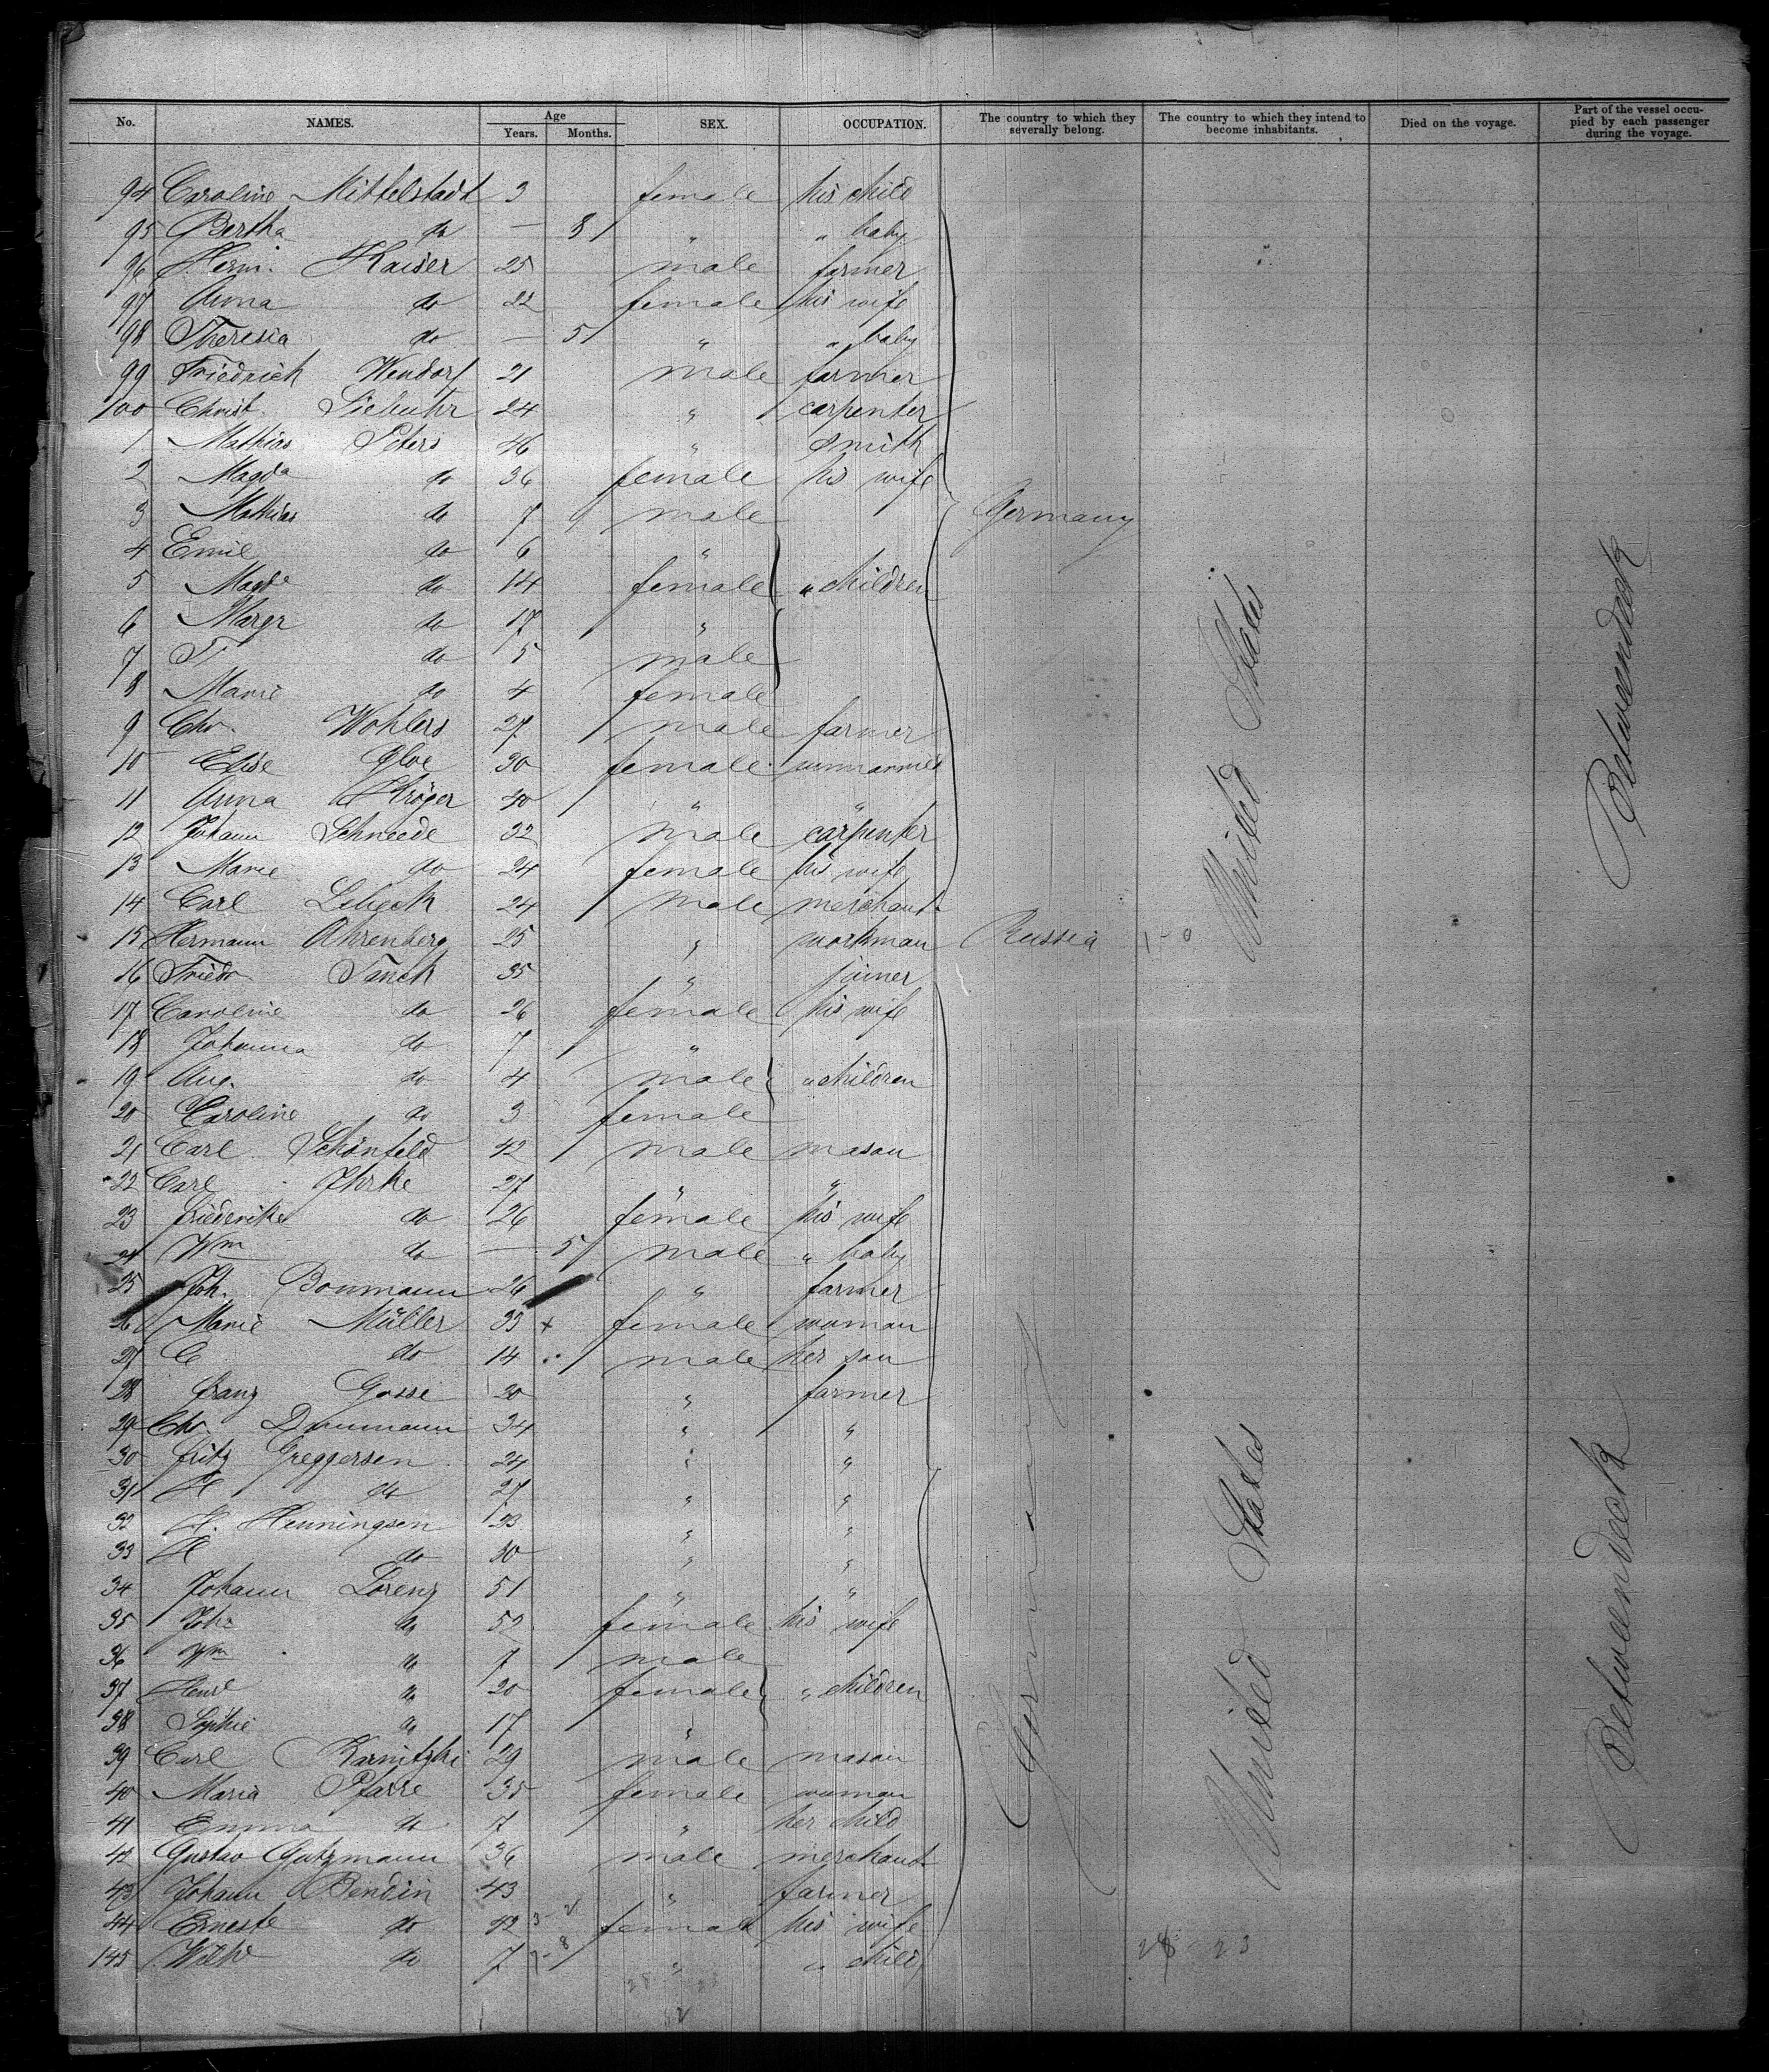 No. NAMES. Age Years. Months. SEX. OCCUPATION. The country to which they severally belong. The country to which they intend to become inhabitants. Died on the voyage. Part of the vessel occupied by each passenger during the voyage.
94 Caroline Mittelstadt 3 female his child
95 Bertha do — 8 " " baby
96 Herm. Kaiser 25 male farmer
97 Anna do 22 female his wife
98 Theresia do — 5 " " baby
99 Friedrich Wendorf 21 male farmer
100 Christ. Siehuhr 24 " carpenter
1 Mathias Peters 46 " smith
2 Magda do 36 female his wife
3 Mathias do 7 9 male Germany
4 Emil do 6 "
5 Magda do 14 female " children
6 Margr do 17 "
7 T do 5 male
8 Marie do 4 female
9 Chr. Wohlers 27 male farmer
10 Elise Gloe 30 female unmarried
11 Anna Kröger 40 " "
12 Johann Schneede 32 male carpenter
13 Marie do 24 female his wife
14 Carl Lebeck 24 male merchant
15 Hermann Ahrenberg 25 " workman Russia 1-0 United States Betweendeck
16 Friedr. Tanck 35 " joiner
17 Caroline do 26 female his wife
18 Johanna do 7 "
19 Aug. do 4 male " children
20 Caroline do 3 female
21 Carl Schönfeld 42 male mason
22 Carl Jhrke 27 " "
23 Friederike do 26 female his wife
24 Wm do — 5 male " baby
25 Joh. Boumann 26 " farmer
26 Marie Müller 33 + female woman
27 C do 14 male her son
28 Franz Gosse 20 " farmer
29 Chr. Dammann 34 " "
30 Fritz Greggersen 24 " "
31 H do 27 " "
32 H. Henningsen 33 " "
33 H do 30 " "
34 Johann Lorenz 51 " "
35 Joha do 52 female his wife
36 Wm do 7 male
37 Henr do 20 female " children
38 Sophie do 17 "
39 Carl Karnitzki 29 male mason
40 Maria Pfarre 35 female woman
41 Emma do 7 " her child
42 Gustav Gutzmann 36 male merchant
43 Johann Bendin 43 " farmer
44 Erneste do 42 female his wife
145 Wilhe do 7 " " child
Germany United States Betweendeck
28 23